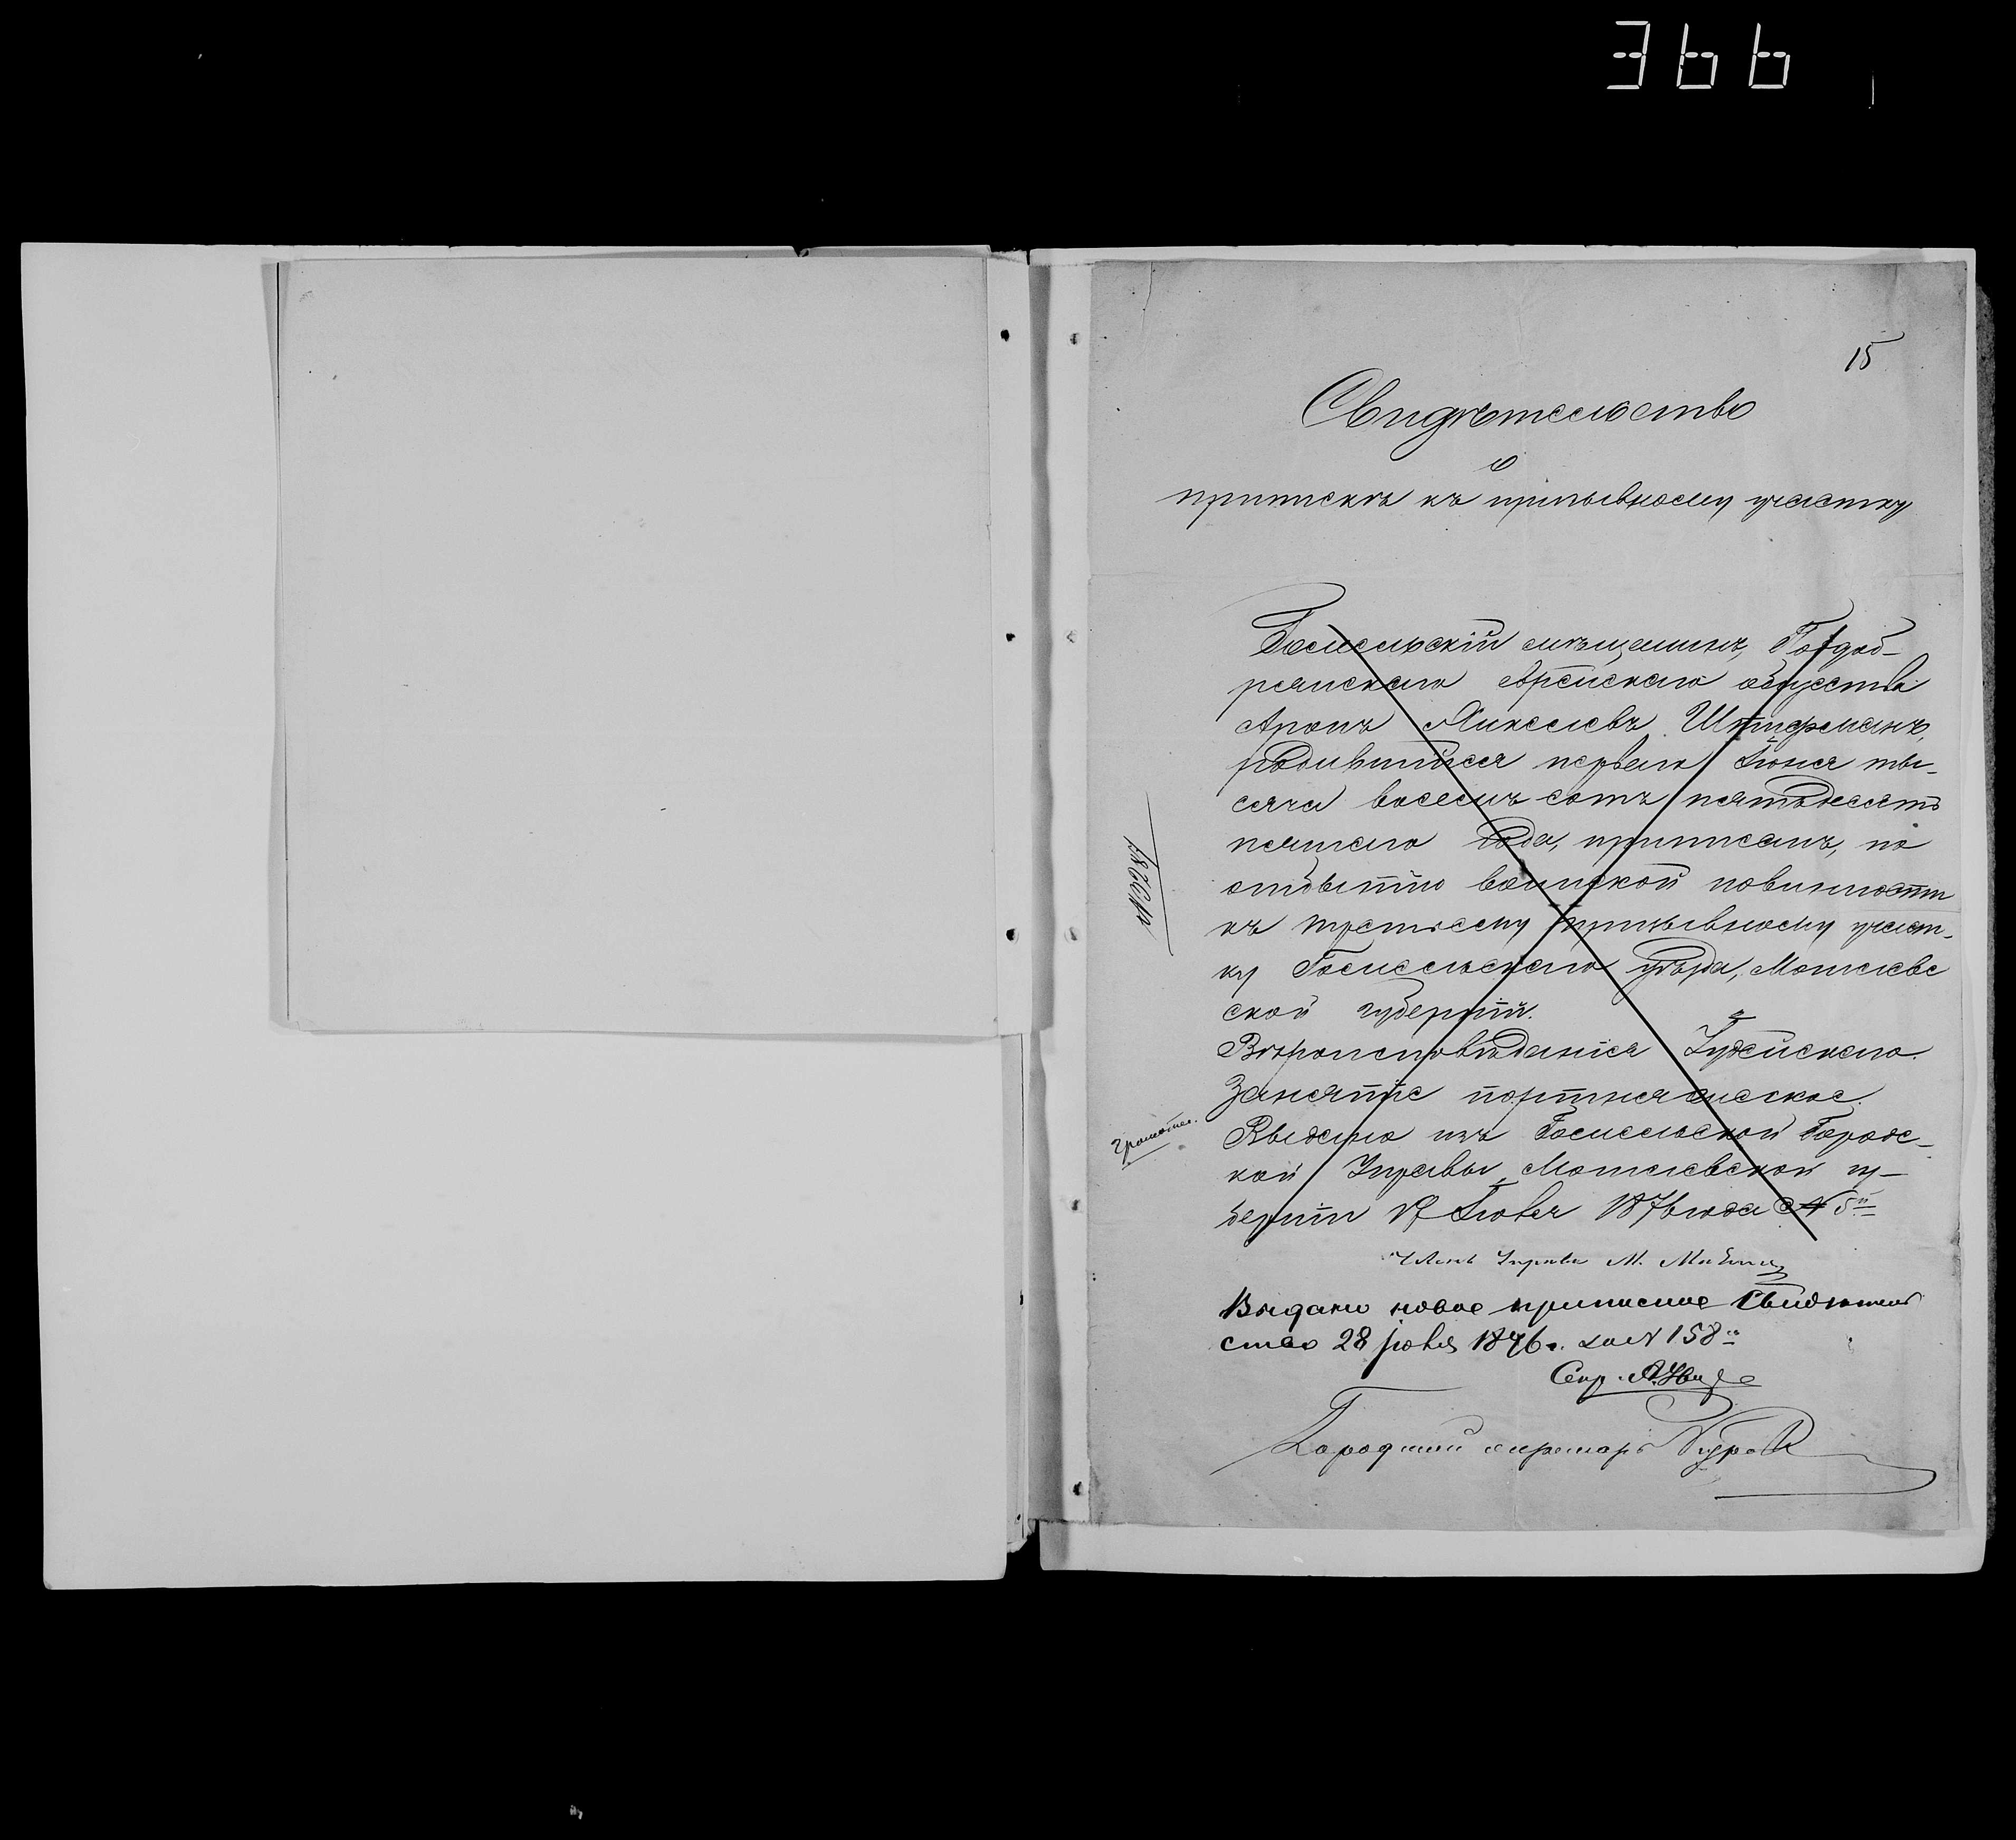 366
15
Свидѣтельство
о
припискѣ къ призывному участку
Гомельскій мѣщанинъ, Поддоб-
рянскаго еврейскаго общества
Аронъ Хикелевъ Штиферманъ,
родившійся перваго Іюня ты-
сяча восемь сотъ пятьдесятъ
пятаго года, приписанъ, по
отбытію воинской повинности
къ третьему призывному участ-
ку Гомельскаго уѣзда, Могилевс
ской губерніи.
Вѣроисповѣданія Іудейскаго.
Занятіе портняжеское.
грамотн.
Выдано изъ Гомельской Городс-
кой Управы, Могилевской гу-
берніи Іюля 1876 года № 5й
Членъ Управы М.
Выдано новое приписное Свидѣтель
ство 28 Іюля 1876 г. за № 158й
Секр.
Городской секретарь